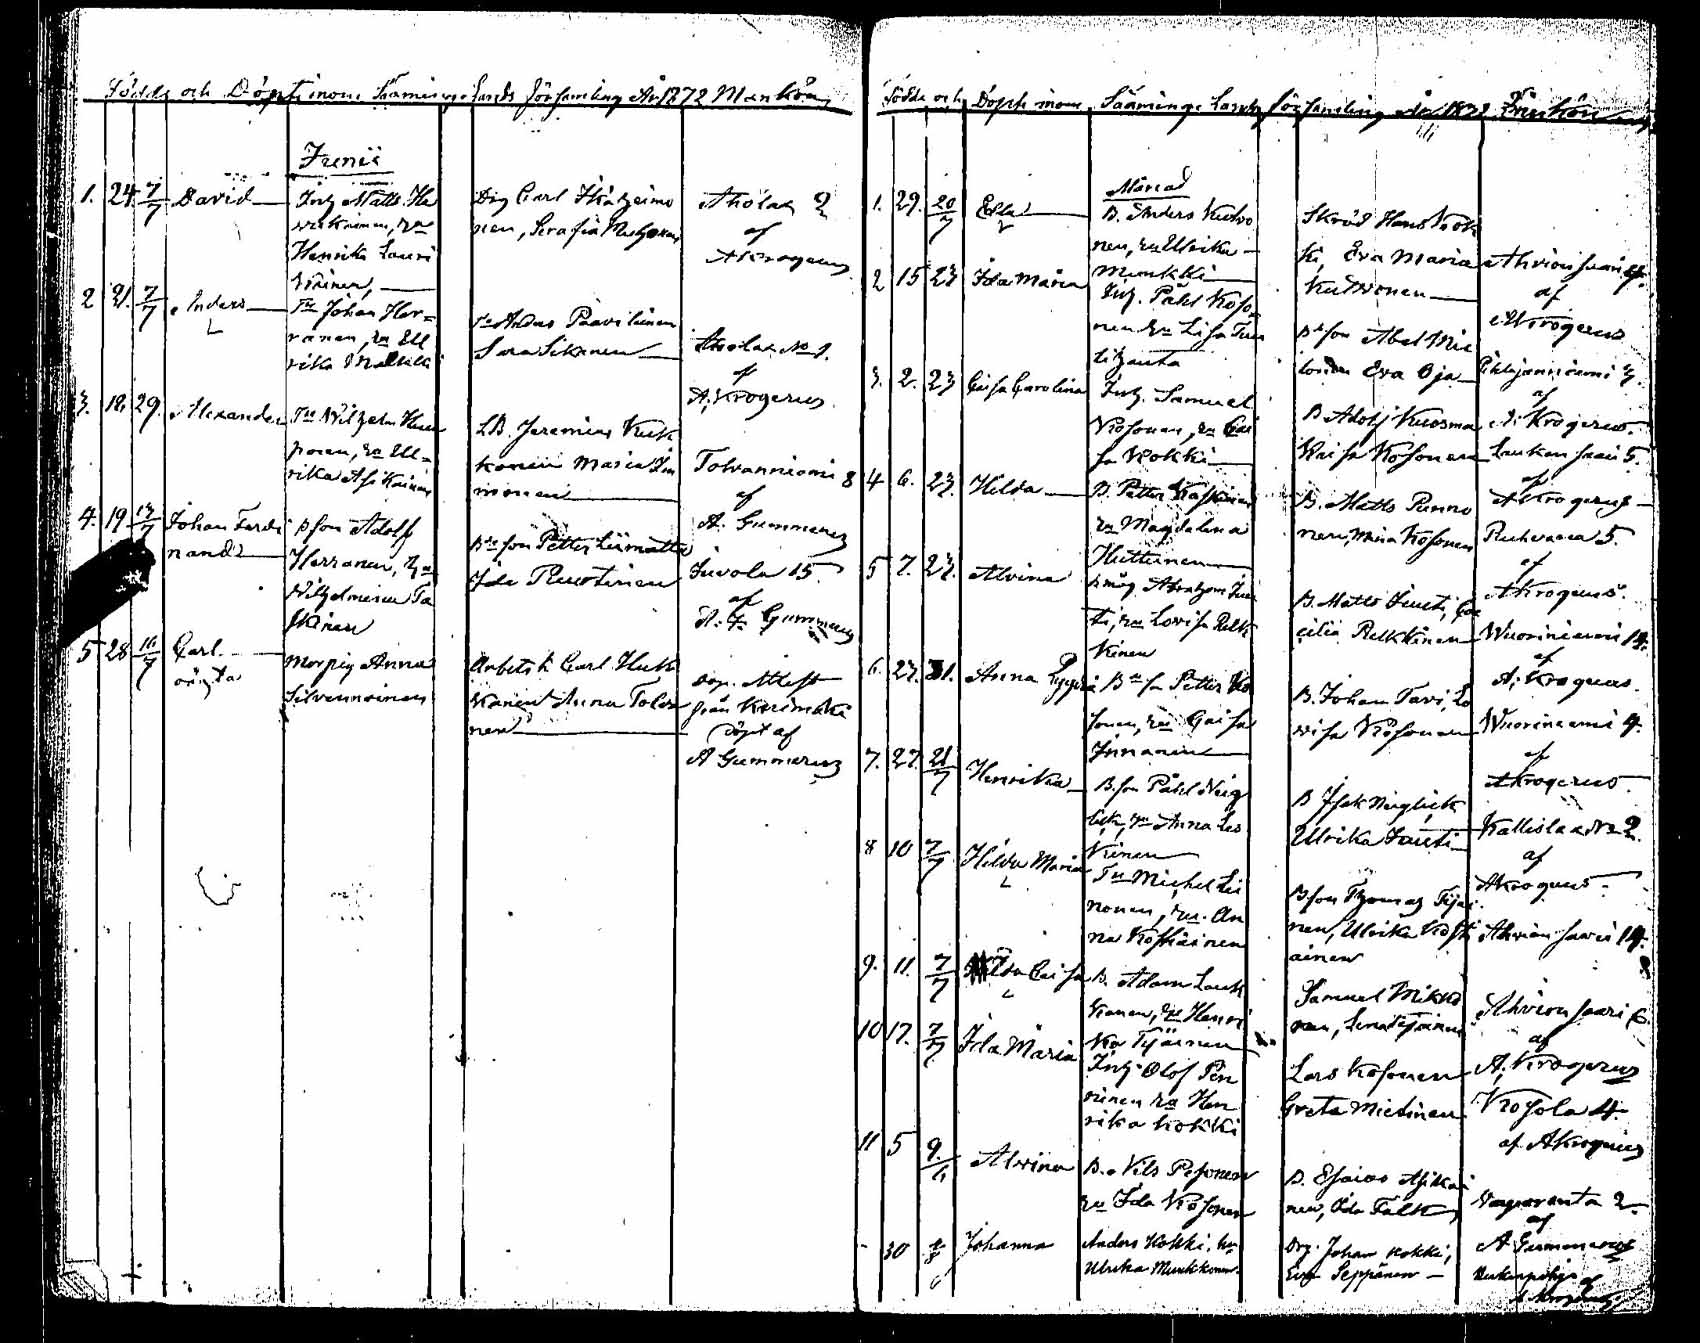 Födde och Döpte inom Sääminge Lands församling År 1872 Mankön
Junii
1. 24 7/7 David
Inh. Matts Ha
vukainen, hu
Henrika Lauri
kainen,
Drg Carl
nen, Serafia
Aholax 2
af
AKrogerus
2 21. 7/7 Anders
Tu Johan Her-
ranen, hu Ull
rika Malkki
Anders Paavilainen
Sara Sikanen
Aholax No 1.
af
A. Krogerus
3. 18. 29. Alexander
Tu Wilhelm
ponen, hu Ull-
rika Asikainen
LB. Jeremias Kuk
konen Maria Im
monen
Tolvanniemi 8
af
A. Gummerus
4. 19 Johan Ferdi
nand
pson Adolf
Herranen, hu
Wilhelmina Ta
skinen
Bdeson Petter Liimatta
Ida Ruotsinen
Juvola 15.
af
A. F. Gummerus
5 28 Carl
oägta
Morpig Anna
Silvennoinen
Arbets k. Carl Huk
kanen Anna Tolva
nen
från Kerimäki
döpt af
A Gummerus
Födde och Döpte inom Sääminge Lands församling År 1872 Qvinkön
1. 29. 20/7 Edla
B. Anders Kutvo
nen, hu Ulrika
Munkki
Skräd Hans Kok
ki, Eva Maria
Kutvonen
Ahvionsaari 4.
af
AKrogerus
2 15 23 Ida Maria
Inh. Påhl Koso
nen hu Lisa Tuu
lihanta
Bdson Abel Mie
tinen Eva Oja
Pihlajaniemi 3.
af
A. Krogerus.
3. 2. 23 Caisa Carolina
Inh. Samuel
Kosonen, hu Cai
sa Kokki
B Adolf Kuosma
Kaisa Kosonen
Laukansaari 5.
af
AKrogerus
4 6. 23. Hilda
B. Petter Kaskinen
hu Magdalena
Huttunen
B. Matts Punno
nen, Mina Kosonen
Ruhvana 5.
af
AKrogerus.
5 7. 23. Alvina
pmåg Abraham Juu
ti, hu Lovisa Pelk
kinen
B. Matts Juuti, Cae
cilia Pelkkinen
Wuoriniemi 14.
af
A. Krogerus.
6. 23. 31. Anna
Bdson Petter Ko
sonen, hu Caisa
Innanen
B. Johan Tavi, Lo
visa Kosonen
Wuoriniemi 4.
af
AKrogerus
7. 27. 21/7 Henrika
B.son Påhl Neig
lick, hu Anna Les
kinen
B Isak Neiglick
Ulrika Juuti
Kallislax No 2
af
AKrogerus
8 10 7/7 Hilda Maria
Tu Michel Lii
nonen, hu An
na Koskäinen
B son Thomas Tijäi
nen, Ulrika Kosk
äinen
Ahvionsaari 14.
9. 11. 7/7 Ida Caisa
B. Adam Lauk
kanen, hu Henri
ka Tijäinen
Samuel Mikko
nen, Lena Tijäinen
Ahvionsaari 6.
af
A. Krogerus
10 17. 7/7 Ida Maria
Inh. Olof Pen
ninen hu Hen
rika Kokki
Lars Kosonen
Greta Mietinen
Kosola 4
af AKrogerus
11 5 Alvina
B. Nils Pesonen
hu Ida Kosonen
B. Esaias Asikai
nen, Ida Falk
Vaparanta 2.
af
A Gummerus
30 Johanna
Anders Kokki, hu
Ulrika Munkkonen.
Drg. Johan Kokki,
Eva Seppänen
af